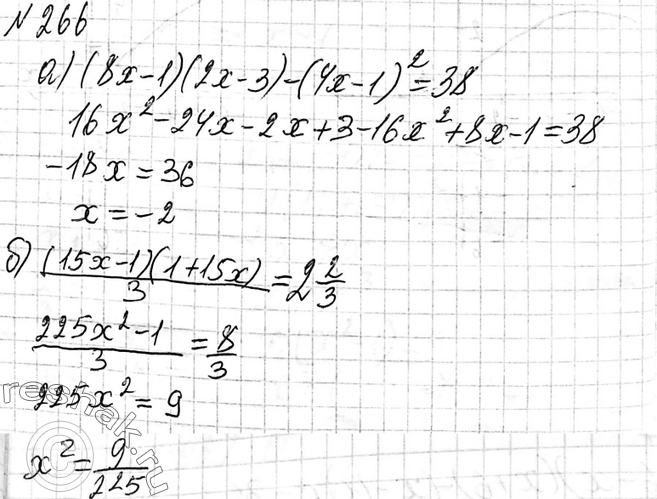 № 266
а) (8x-1)(2x-3)-(4x-1)²=38
16x²-24x-2x+3-16x²+8x-1=38
-18x=36
x=-2
б) (15x-1)(1+15x)/3=2 2/3
225x²-1/3=8/3
225x²=9
x²=9/225
reshak.ru